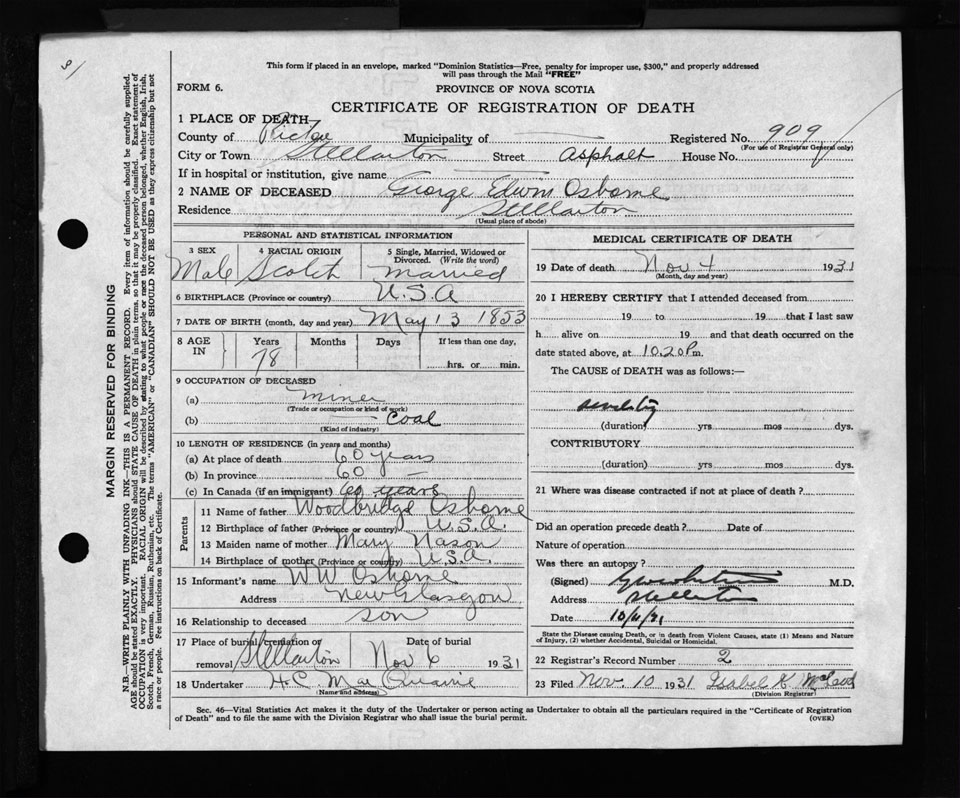 9/
This form if placed in an envelope, marked "Dominion Statistics—Free, penalty for improper use, $300," and properly addressed
will pass through the Mail "FREE"
FORM 6.
PROVINCE OF NOVA SCOTIA
CERTIFICATE OF REGISTRATION OF DEATH
1 PLACE OF DEATH
County of Pictou Municipality of — Registered No. 909
(For use of Registrar General only)
City or Town Stellarton Street Asphalt House No.
If in hospital or institution, give name —
2 NAME OF DECEASED George Edwin Osborne
Residence Stellarton
(Usual place of abode)
MARGIN RESERVED FOR BINDING
N.B.—WRITE PLAINLY WITH UNFADING INK—THIS IS A PERMANENT RECORD. Every item of information should be carefully supplied.
AGE should be stated EXACTLY. PHYSICIANS should STATE CAUSE OF DEATH in plain terms, so that it may be properly classified. Exact statement of
OCCUPATION is very important. RACIAL ORIGIN will be described by stating to what people or race the deceased person belonged, whether English, Irish,
Scotch, French, German, Russian, Ruthenian, etc. The terms "AMERICAN" or "CANADIAN" SHOULD NOT BE USED as they express citizenship but not
a race or people. Fee instructions on back of Certificate.
PERSONAL AND STATISTICAL INFORMATION
3 SEX 4 RACIAL ORIGIN 5 Single, Married, Widowed or
Divorced. (Write the word)
Male Scotch Married
6 BIRTHPLACE (Province or country) U.S.A
7 DATE OF BIRTH (month, day and year) May 13 1853
8 AGE IN Years Months Days If less than one day,
78 hrs. or min.
9 OCCUPATION OF DECEASED
(a) Miner
(Trade or occupation or kind of work)
(b) Coal
(Kind of industry)
10 LENGTH OF RESIDENCE (in years and months)
(a) At place of death 60 years
(b) In province 60 —
(c) In Canada (if an immigrant) 60 years
Parents
11 Name of father Woodbridge Osborne
12 Birthplace of father (Province or country) U.S.A.
13 Maiden name of mother Mary Nason
14 Birthplace of mother (Province or country) U.S.A.
15 Informant's name W W Osborne
Address New Glasgow
16 Relationship to deceased son
17 Place of burial, cremation or Date of burial
removal Stellarton Nov 6 1931
18 Undertaker H.C. Mac Quarrie
(Name and address)
MEDICAL CERTIFICATE OF DEATH
19 Date of death Nov 4 1931
(Month, day and year)
20 I HEREBY CERTIFY that I attended deceased from
19 to 19 that I last saw
h alive on 19 and that death occurred on the
date stated above, at 10.20 P.m.
The CAUSE of DEATH was as follows:—
senility
(duration) yrs mos dys.
CONTRIBUTORY
(duration) yrs mos dys.
21 Where was disease contracted if not at place of death?
Did an operation precede death? Date of
Nature of operation
Was there an autopsy?
(Signed) M.D.
Address Stellarton
Date 10/11/31
State the Disease causing Death, or in death from Violent Causes, state (1) Means and Nature
of Injury, (2) whether Accidental, Suicidal or Homicidal.
22 Registrar's Record Number 2
23 Filed Nov. 10 1931 Isabel K. McLeod
(Division Registrar)
Sec. 46—Vital Statistics Act makes it the duty of the Undertaker or person acting as Undertaker to obtain all the particulars required in the "Certificate of Registration
of Death" and to file the same with the Division Registrar who shall issue the burial permit.
(OVER)